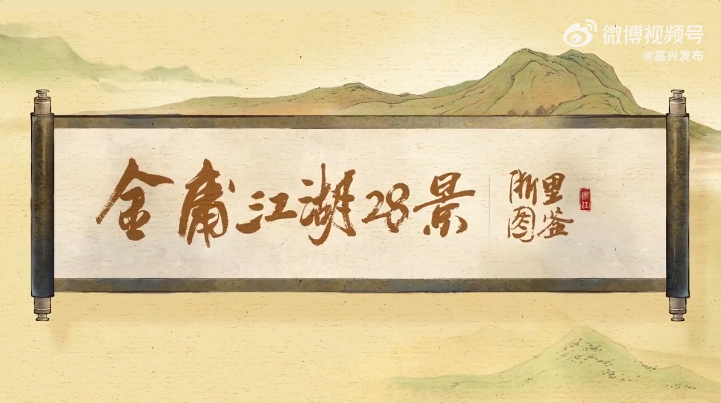 微博视频号
@嘉兴发布
金庸江湖28景
浙里
图鉴
浙江